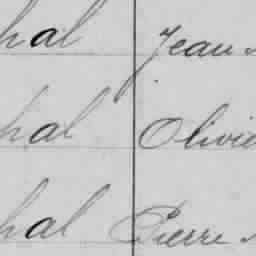 hal Jean
hal Olivie
hal Pierre